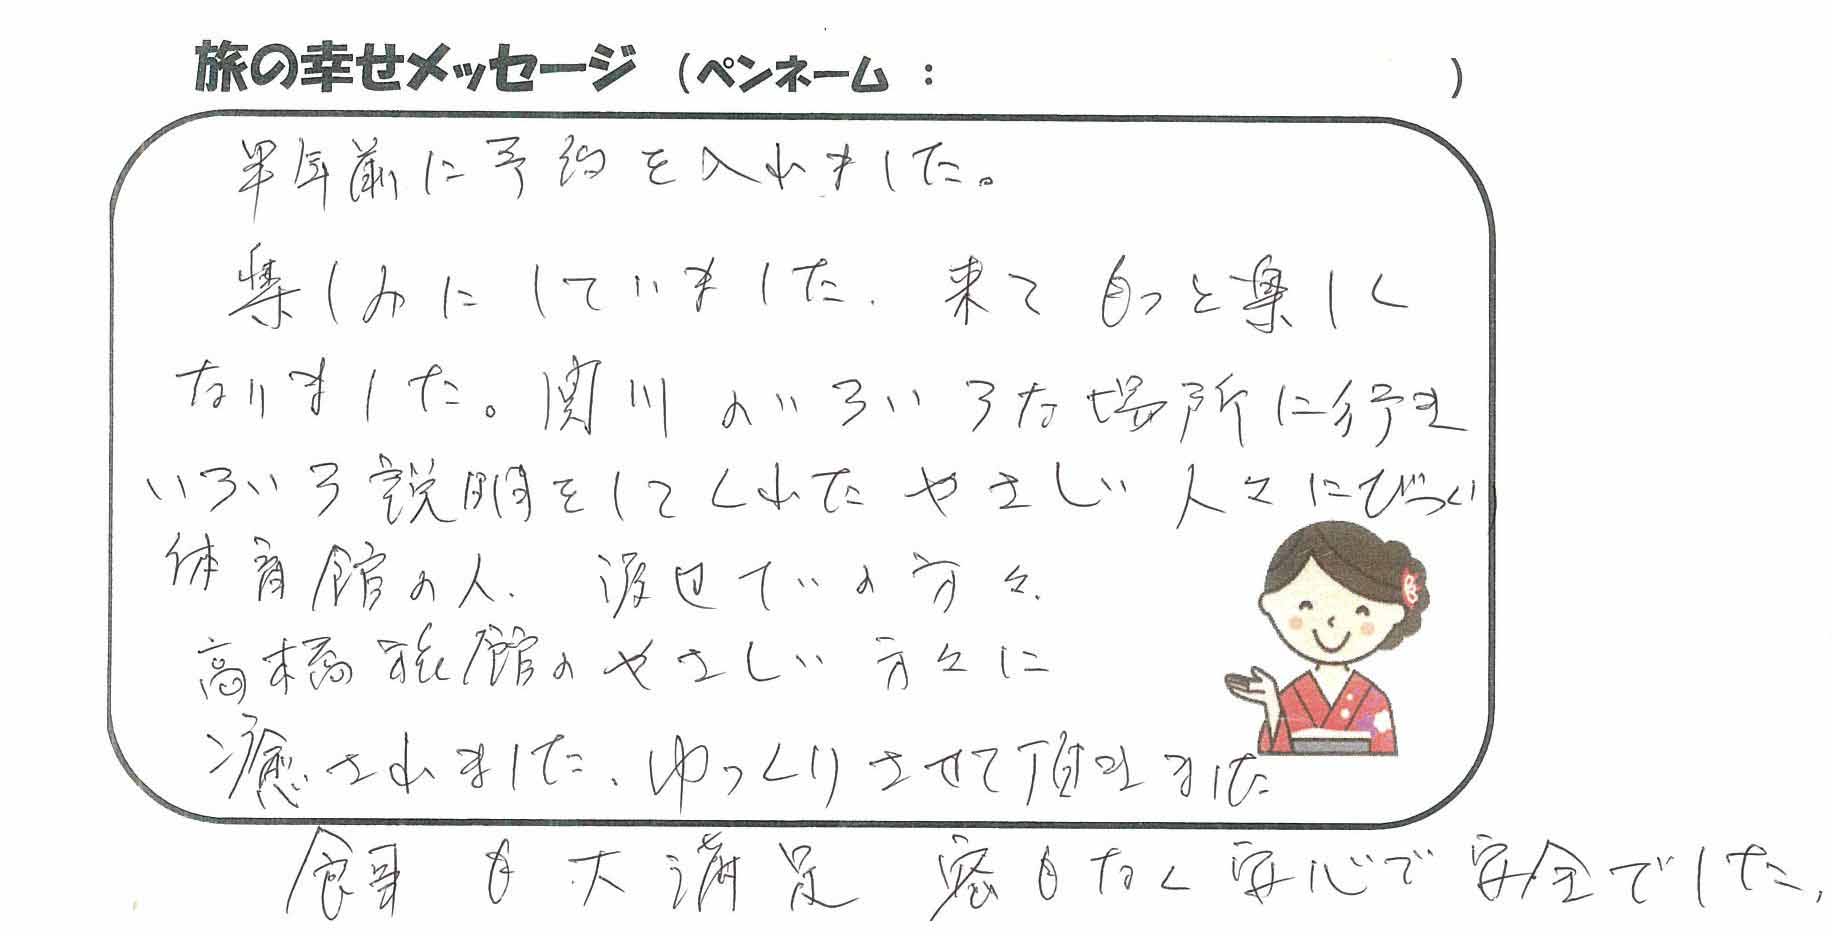 旅の幸せメッセージ (ペンネーム : )
半年前に予約を入れました。
楽しみにしていました. 来てもっと楽しく
なりました。関川のいろいろな場所に行き
いろいろ説明をしてくれたやさしい人々にびっくり
体育館の人. 渡辺ていの方々.
高橋旅館のやさしい方々に
癒されました. ゆっくりさせて頂きました
食事も大満足 密もなく安心で安全でした.